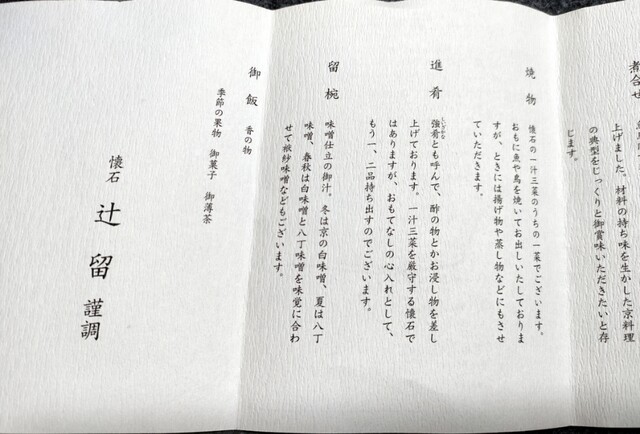 煮合せ
上げました。材料の持ち味を生かした京料理
の典型をじっくりと御賞味いただきたいと存
じます。
焼物
懐石の一汁三菜のうちの一菜でございます。
おもに魚や鳥を焼いてお出しいたしておりま
すが、ときには揚げ物や蒸し物などにもさせ
ていただきます。
進肴
強肴とも呼んで、酢の物とかお浸し物を差し
上げております。一汁三菜を厳守する懐石で
はありますが、おもてなしの心入れとして、
もう一、二品持ち出すのでございます。
留椀
味噌仕立の御汁。冬は京の白味噌、夏は八丁
味噌、春秋は白味噌と八丁味噌を味覚に合わ
せて袱紗味噌などもございます。
御飯 香の物
季節の果物 御菓子 御薄茶
懐石 辻留 謹調